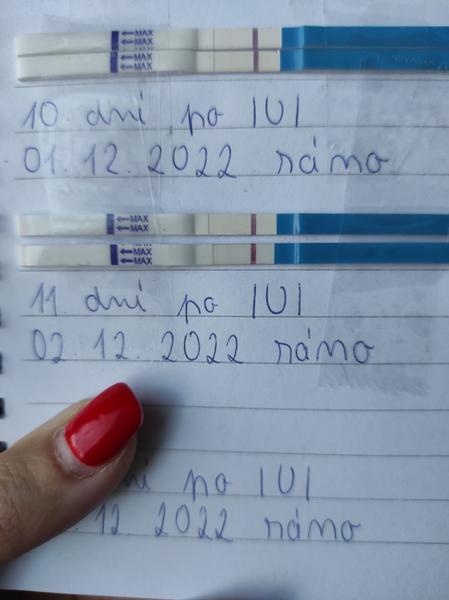 ←MAX
←MAX
10. dní po IUI
01.12.2022 ráno
←MAX
←MAX
←MAX
11. dní po IUI
02.12.2022 ráno
ní po IUI
12.2022 ráno